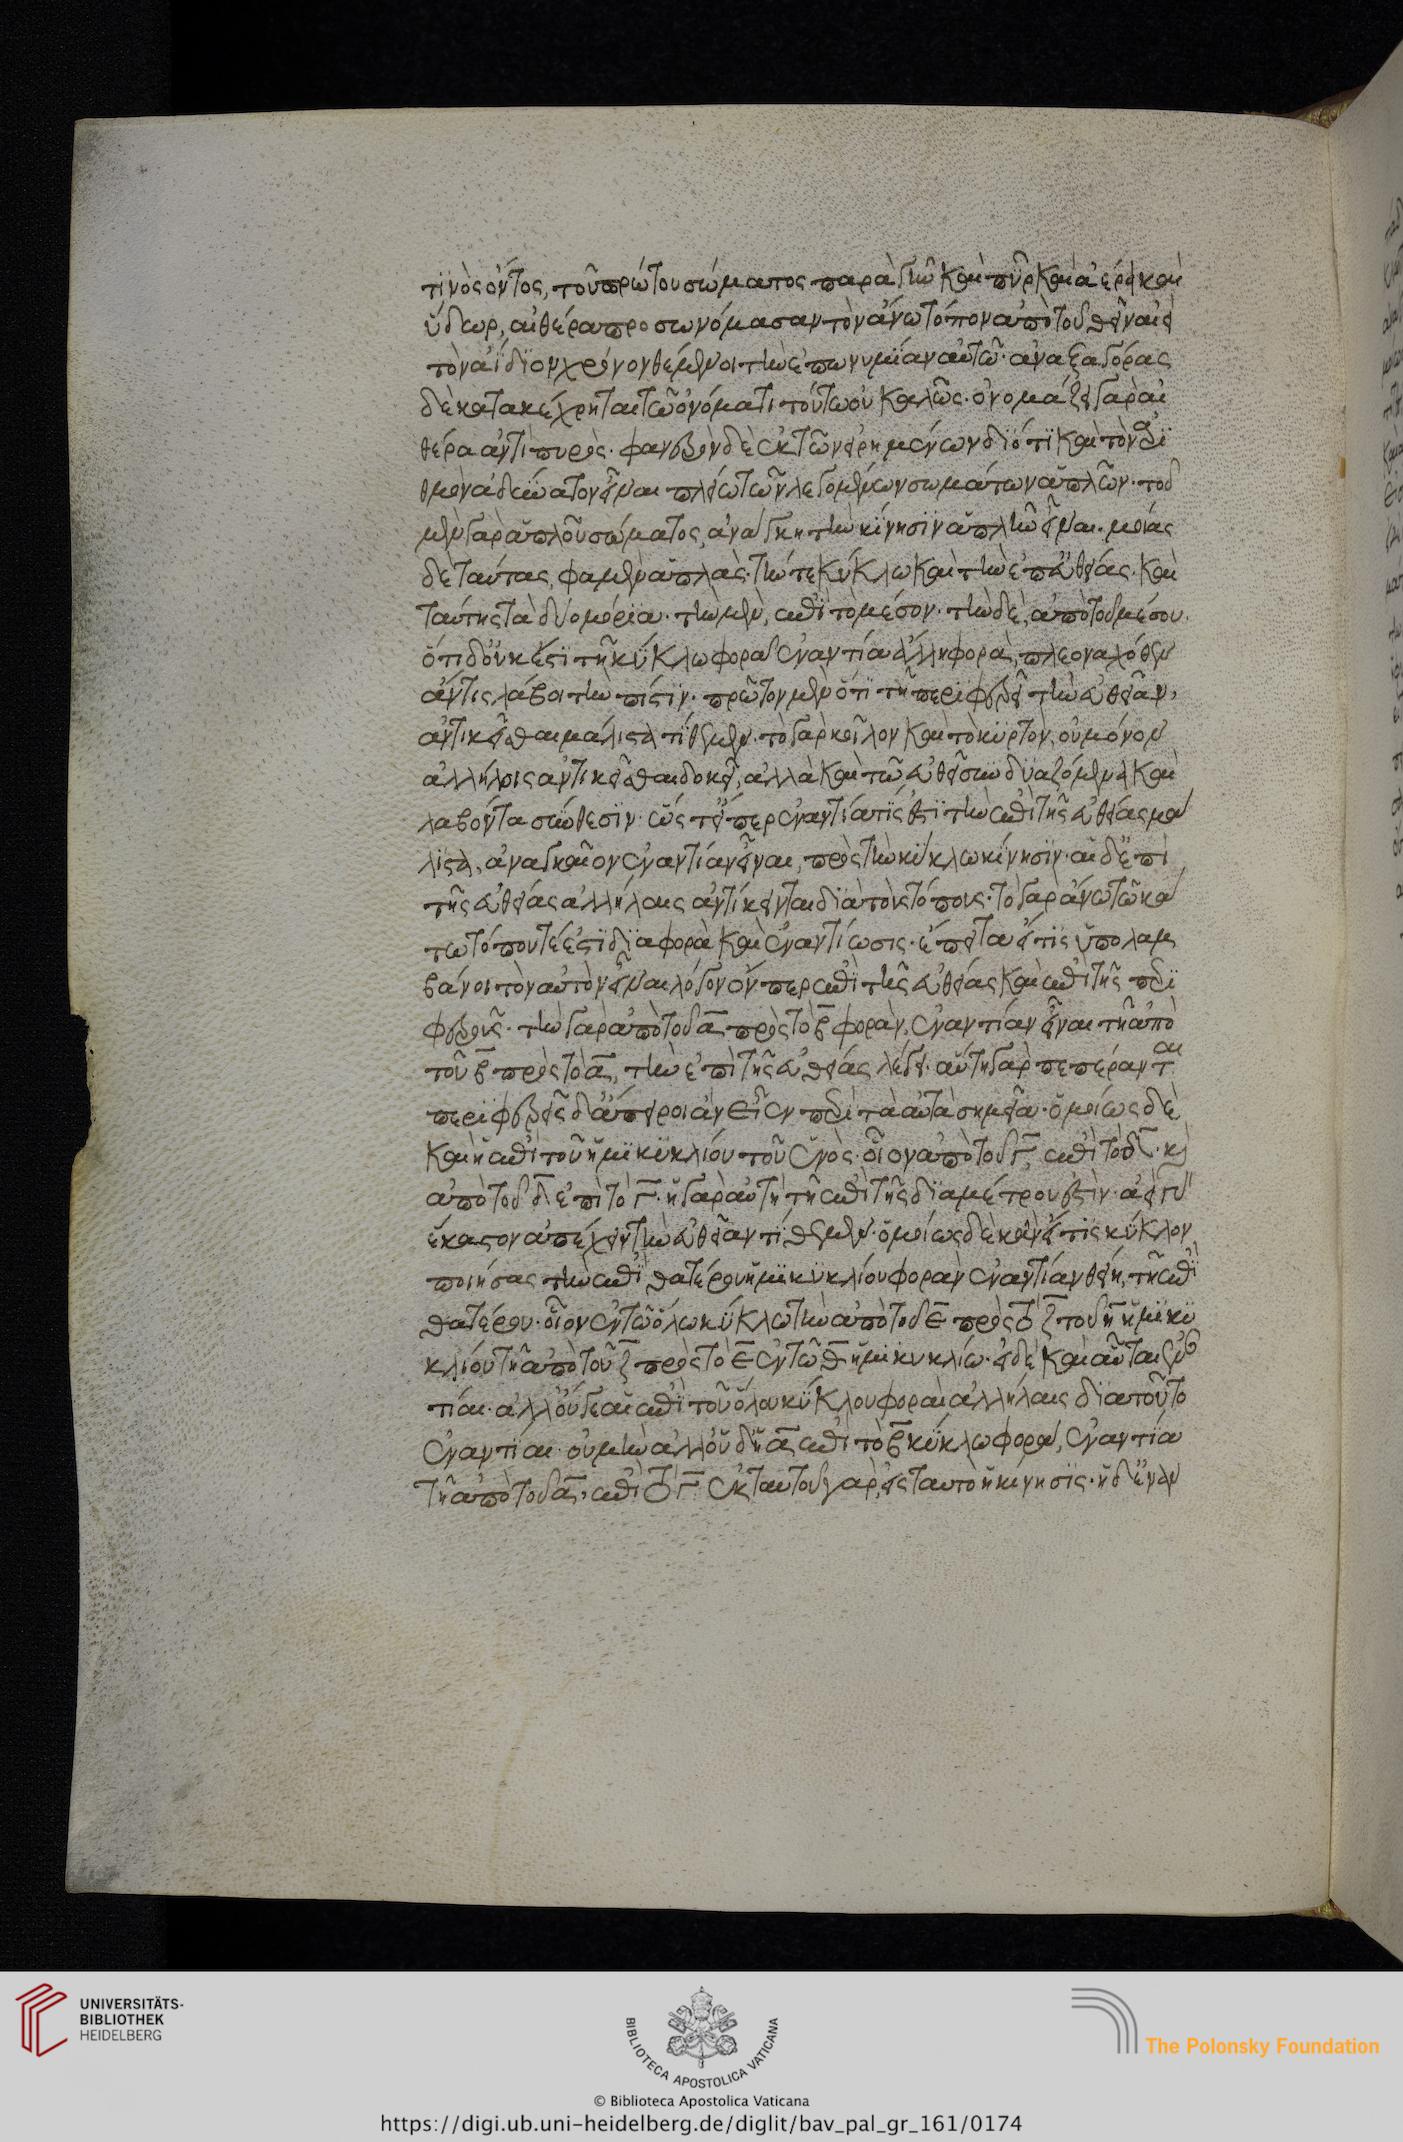 τινὸς ὄντος, τοῦ πρώτου σώματος παρὰ γῆν καὶ πῦρ καὶ ἀέρα καὶ
ὕδωρ, αἰθέρα προσωνόμασαν τὸν ἀνωτάτω τόπον ἀπὸ τοῦ θεῖν ἀεὶ
τὸν ἀΐδιον χρόνον θέμενοι τὴν ἐπωνυμίαν αὐτῶ· ἀναξαγόρας
δὲ κατακέχρηται τῶ ὀνόματι τούτω οὐ καλῶς· ὀνομάζει γὰρ αἰ
θέρα ἀντὶ πυρὸς· φανερὸν δὲ ἐκ τῶν εἰρημένων διότι καὶ τὸν ἀρι
θμὸν ἀδύνατον εἶναι πλείω τῶν λεγομένων σωμάτων ἁπλῶν· τοῦ
μὲν γὰρ ἁπλοῦ σώματος, ἀνάγκη τὴν κίνησιν ἁπλῆν εἶναι· μόνας
δὲ ταύτας φαμὲν ἁπλὰς· τήν τε κύκλω καὶ τὴν ἐπ' εὐθείας· καὶ
ταύτης τὰ δύο μόρια· τὴν μὲν, ἐπὶ τὸ μέσον· τὴν δὲ, ἀπὸ τοῦ μέσου·
ὅτι δ' οὐκ ἔστι τῆ κύκλω φορᾶ ἐναντία ἄλλη φορὰ, πλεοναχόθεν
ἄν τις λάβοι τὴν πίστιν· πρῶτον μὲν ὅτι τῆ περιφερεῖ τὴν εὐθεῖαν,
ἀντικεῖσθαι μάλιστα τίθεμεν· τὸ γὰρ κοῖλον καὶ τὸ κυρτὸν, οὐ μόνον
ἀλλήλοις ἀντικεῖσθαι δοκεῖ, ἀλλὰ καὶ τῶ εὐθεῖ συνδυαζόμενα καὶ
λαβόντα σύνθεσιν· ὥστ' εἴπερ ἐναντία τίς ἐστι τὴν ἐπὶ τῆς εὐθείας μά
λιστα, ἀναγκαῖον ἐναντίαν εἶναι, πρὸς τὴν κύκλω κίνησιν· αἱ δ' ἐπὶ
τῆς εὐθείας ἀλλήλαις ἀντίκεινται διὰ τοὺς τόπους· τὸ γὰρ ἄνω τῶ κά
τω τόπου τέ ἐστι διαφορὰ καὶ ἐναντίωσις· ἔπειτα εἴ τις ὑπολαμ
βάνοι τὸν αὐτὸν εἶναι λόγον ὅνπερ ἐπὶ τῆς εὐθείας καὶ ἐπὶ τῆς περι
φεροῦς· τὴν γὰρ ἀπὸ τοῦ α πρὸς τὸ β φορὰν, ἐναντίαν εἶναι τῆ ἀπὸ
τοῦ β πρὸς τὸ α, τὴν ἐπὶ τῆς εὐθείας λέγει· αὕτη γὰρ πεπέρανται
περιφερεῖς δ' ἄπειροι ἂν εἶεν περὶ τὰ αὐτὰ σημεῖα· ὁμοίως δὲ
καὶ ἡ ἐπὶ τοῦ ἡμικυκλίου τοῦ ἑνὸς· οἷον ἀπὸ τοῦ γ ἐπὶ τὸ δ· καὶ
ἀπὸ τοῦ δ ἐπὶ τὸ γ· ἡ γὰρ αὐτὴ τῆ ἐπὶ τῆς διαμέτρου ἐστὶν· ἀεὶ γὰρ
ἕκαστον ἀπέχειν τὴν εὐθεῖαν τίθεμεν· ὁμοίως δὲ κἂν εἴ τις κύκλον
ποιήσας τὴν ἐπὶ θατέρου ἡμικυκλίου φορὰν ἐναντίαν θείη, τῆ ἐπὶ
θατέρου· οἷον ἐν τῶ ὅλω κύκλω τὴν ἀπὸ τοῦ ε πρὸς τὸ ζ τοῦ η ἡμικυ
κλίου τῆ ἀπὸ τοῦ ζ πρὸς τὸ ε ἐν τῶ θ ἡμικυκλίω· εἰ δὲ καὶ αὗται ἐναν
τίαι· ἀλλ' οὔτι γε αἱ ἐπὶ τοῦ ὅλου κύκλου φοραὶ ἀλλήλαις διὰ τοῦτο
ἐναντίαι· οὐ μὴν ἀλλ' οὐδ' ἡ α ἐπὶ τὸ β κύκλω φορὰ, ἐναντία
τῆ ἀπὸ τοῦ α, ἐπὶ τὸ γ· ἐκ ταυτοῦ γὰρ, εἰς ταυτὸ ἡ κίνησις· ἡ δ' ἐναν
UNIVERSITÄTS-
BIBLIOTHEK
HEIDELBERG
BIBLIOTECA APOSTOLICA VATICANA
The Polonsky Foundation
© Biblioteca Apostolica Vaticana
https://digi.ub.uni-heidelberg.de/diglit/bav_pal_gr_161/0174